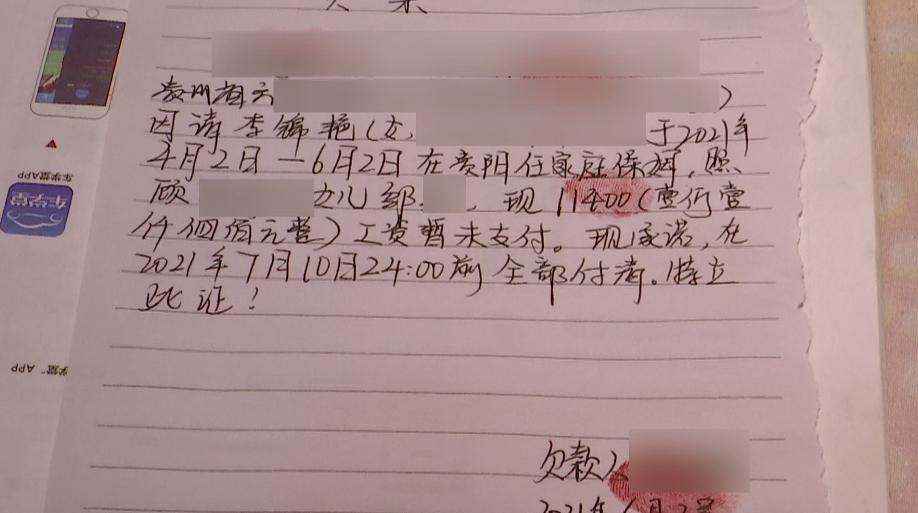 欠条
贵州省六
)
因请李锦艳(女,
于2021年
4月2日一6月2日在贵阳任家庭保姆,照
顾
幼儿部
,现11400(壹仟壹
仟四佰元整)工资暂未支付。现承诺,在
2021年7月10日24:00前全部付清。特立
此证!
欠款人
2021年6月2号
车学堂APP
车学堂
学堂"APP